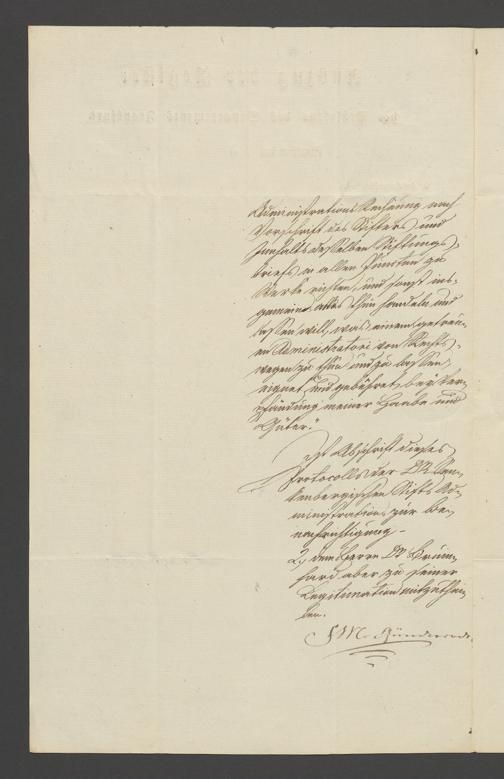 Administrations Rechnung nach
Vorschrift des Stifters und
Innhalts desselben Stiftungs-
briefs in allen Puncten zu
Werke richten, und sonst ins-
gemein alles thun handeln und
lassen will, was einem getreu-
en Administratori von Rechts-
wegen zu thun und zu lassen,
eignet und gebühret, bey Ver-
pfändung meiner Haabe und
Güter."
Ist Abschrift dieses
Protocolls der Dr. Sen-
kenbergischen Stifts Ad-
ministration zur Be-
nachrichtigung –
2, dem Herrn Dr.
aber zu seiner
Legitimation mitzuthei-
len.
Günderrode